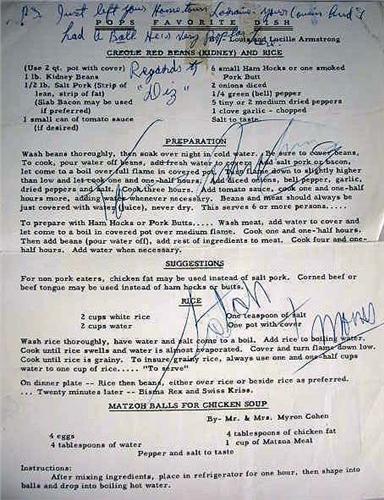 P.S. Just left your Home town
POPS FAVORITE DISH
had a Ball
Louis and Lucille Armstrong
CREOLE RED BEANS (KIDNEY) AND RICE
Regards to
"Diz"
(Use 2 qt. pot with cover) 6 small Ham Hocks or one smoked
1 lb. Kidney Beans Pork Butt
1/2 lb. Salt Pork (Strip of 2 onions diced
lean, strip of fat) 1/4 green (bell) pepper
(Slab Bacon may be used 5 tiny or 2 medium dried peppers
if preferred) 1 clove garlic - chopped
1 small can of tomato sauce Salt to taste
(if desired)
PREPARATION
Wash beans thoroughly, then soak over night in cold water. Be sure to cover beans.
To cook, pour water off beans, add fresh water to cover. Add salt pork or bacon,
let come to a boil over full flame in covered pot. Turn flame down to slightly higher
than low and let cook one and one-half hours. Add diced onions, bell pepper, garlic,
dried peppers and salt. Cook three hours. Add tomato sauce, cook one and one-half
hours more, adding water whenever necessary. Beans and meat should always be
just covered with water (juice), never dry. This serves 6 or more persons....
To prepare with Ham Hocks or Pork Butts..... Wash meat, add water to cover and
let come to a boil in covered pot over medium flame. Cook one and one-half hours.
Then add beans (pour water off), add rest of ingredients to meat. Cook four and one-
half hours. Add water when necessary.
SUGGESTIONS
For non pork eaters, chicken fat may be used instead of salt pork. Corned beef or
beef tongue may be used instead of ham hocks or butts.
RICE
2 cups white rice One teaspoon of salt
2 cups water One pot with cover
Wash rice thoroughly, have water and salt come to a boil. Add rice to boiling water.
Cook until rice swells and water is almost evaporated. Cover and turn flame down low.
Cook until rice is grainy. To insure grainy rice, always use one and one-half cups
water to one cup of rice..... "To serve"
On dinner plate -- Rice then beans, either over rice or beside rice as preferred.
... Twenty minutes later -- Bisma Rex and Swiss Kriss.
MATZOH BALLS FOR CHICKEN SOUP
By- Mr. & Mrs. Myron Cohen
4 eggs 4 tablespoons of chicken fat
4 tablespoons of water 1 cup of Matzoa Meal
Pepper and salt to taste
Instructions:
After mixing ingredients, place in refrigerator for one hour, then shape into
balls and drop into boiling hot water.